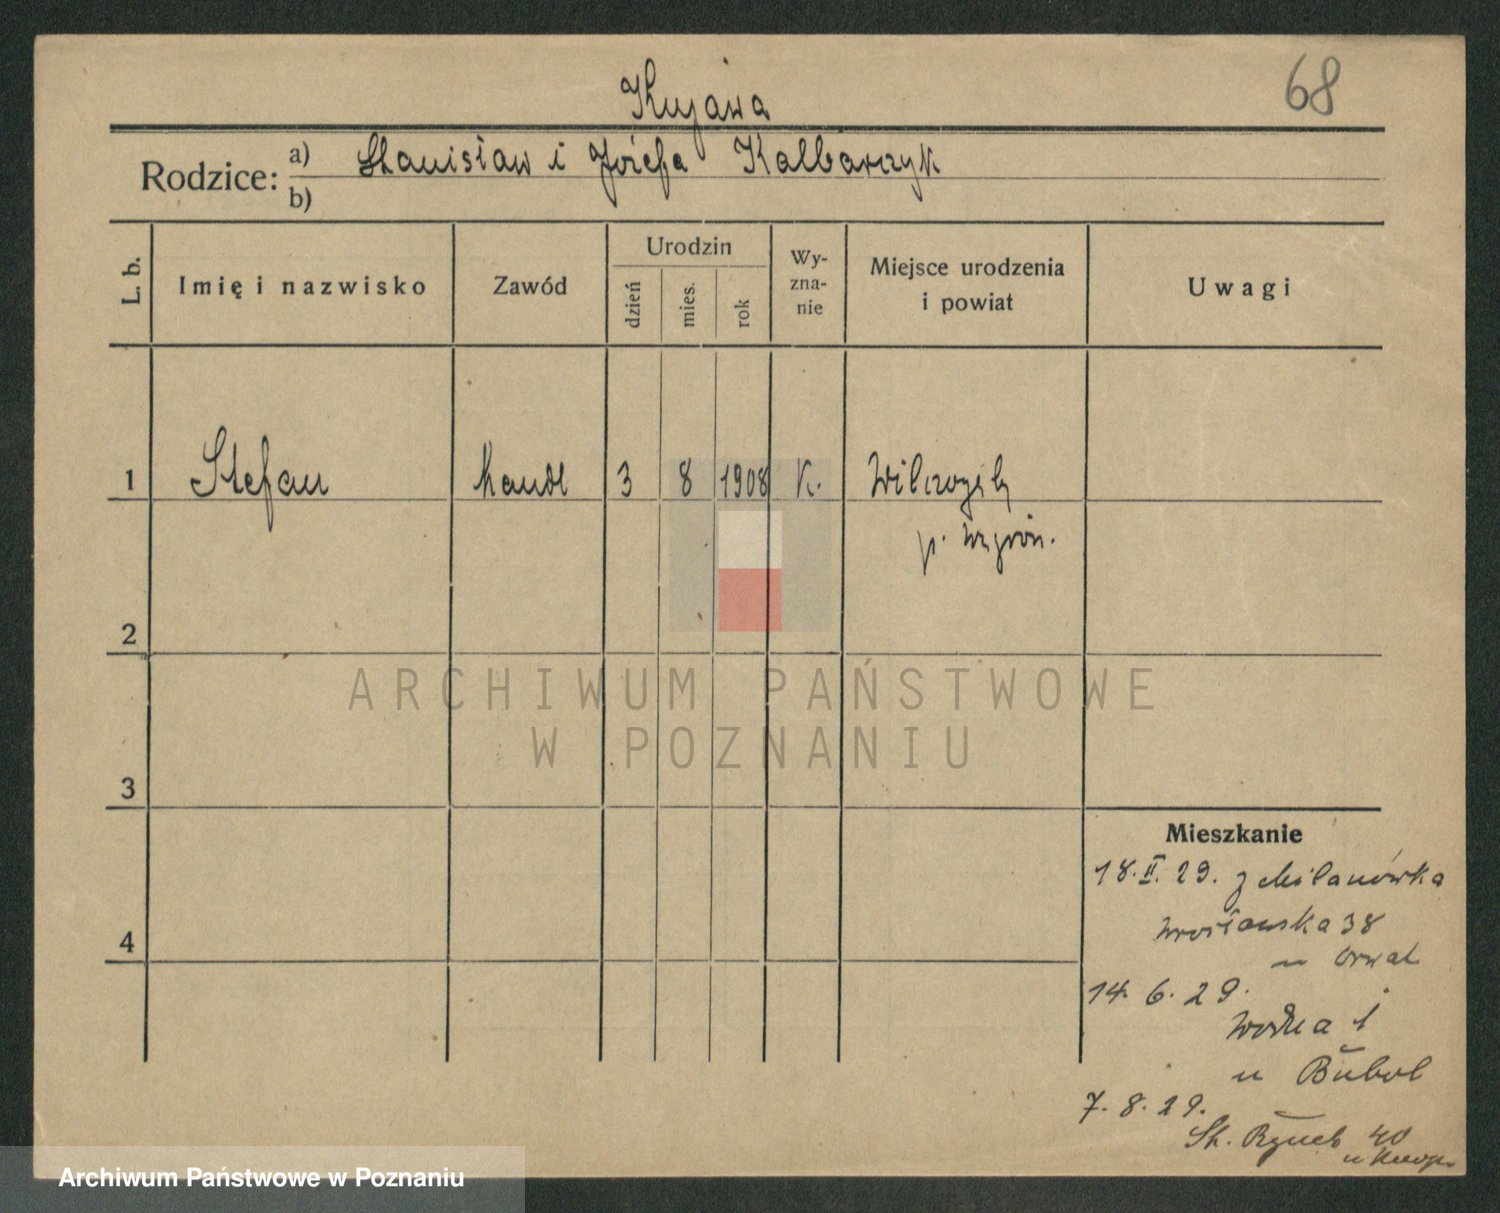 68
Kujawa
Rodzice: a) Stanisław i Józefa Kalbarczyk
b)
L. b. Imię i nazwisko Zawód Urodzin dzień mies. rok Wy-zna-nie Miejsce urodzenia i powiat Uwagi
1 Stefan handl 3 8 1908 K.
p. Wągrów.
2
ARCHIWUM PAŃSTWOWE
W POZNANIU
3
4
Mieszkanie
18.II.29. z Milanówka
Wrocławska 38
u
14. 6. 29.
Wodna 1
u
7. 8. 29.
St. Rynek 40
u
Archiwum Państwowe w Poznaniu